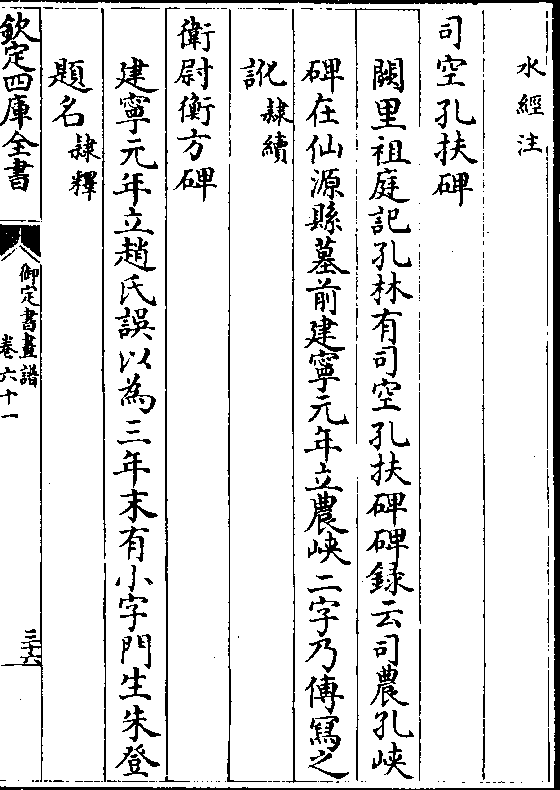 水經注
司空孔扶碑
闕里祖庭記孔林有司空孔扶碑碑錄云司農孔峽
碑在仙源縣墓前建寧元年立農峽二字乃傳寫之
訛隸續
衛尉衡方碑
建寧元年立趙氏誤以為三年末有小字門生朱登
題名隸釋
欽定四庫全書
御定書畫譜
卷六十一
三十六